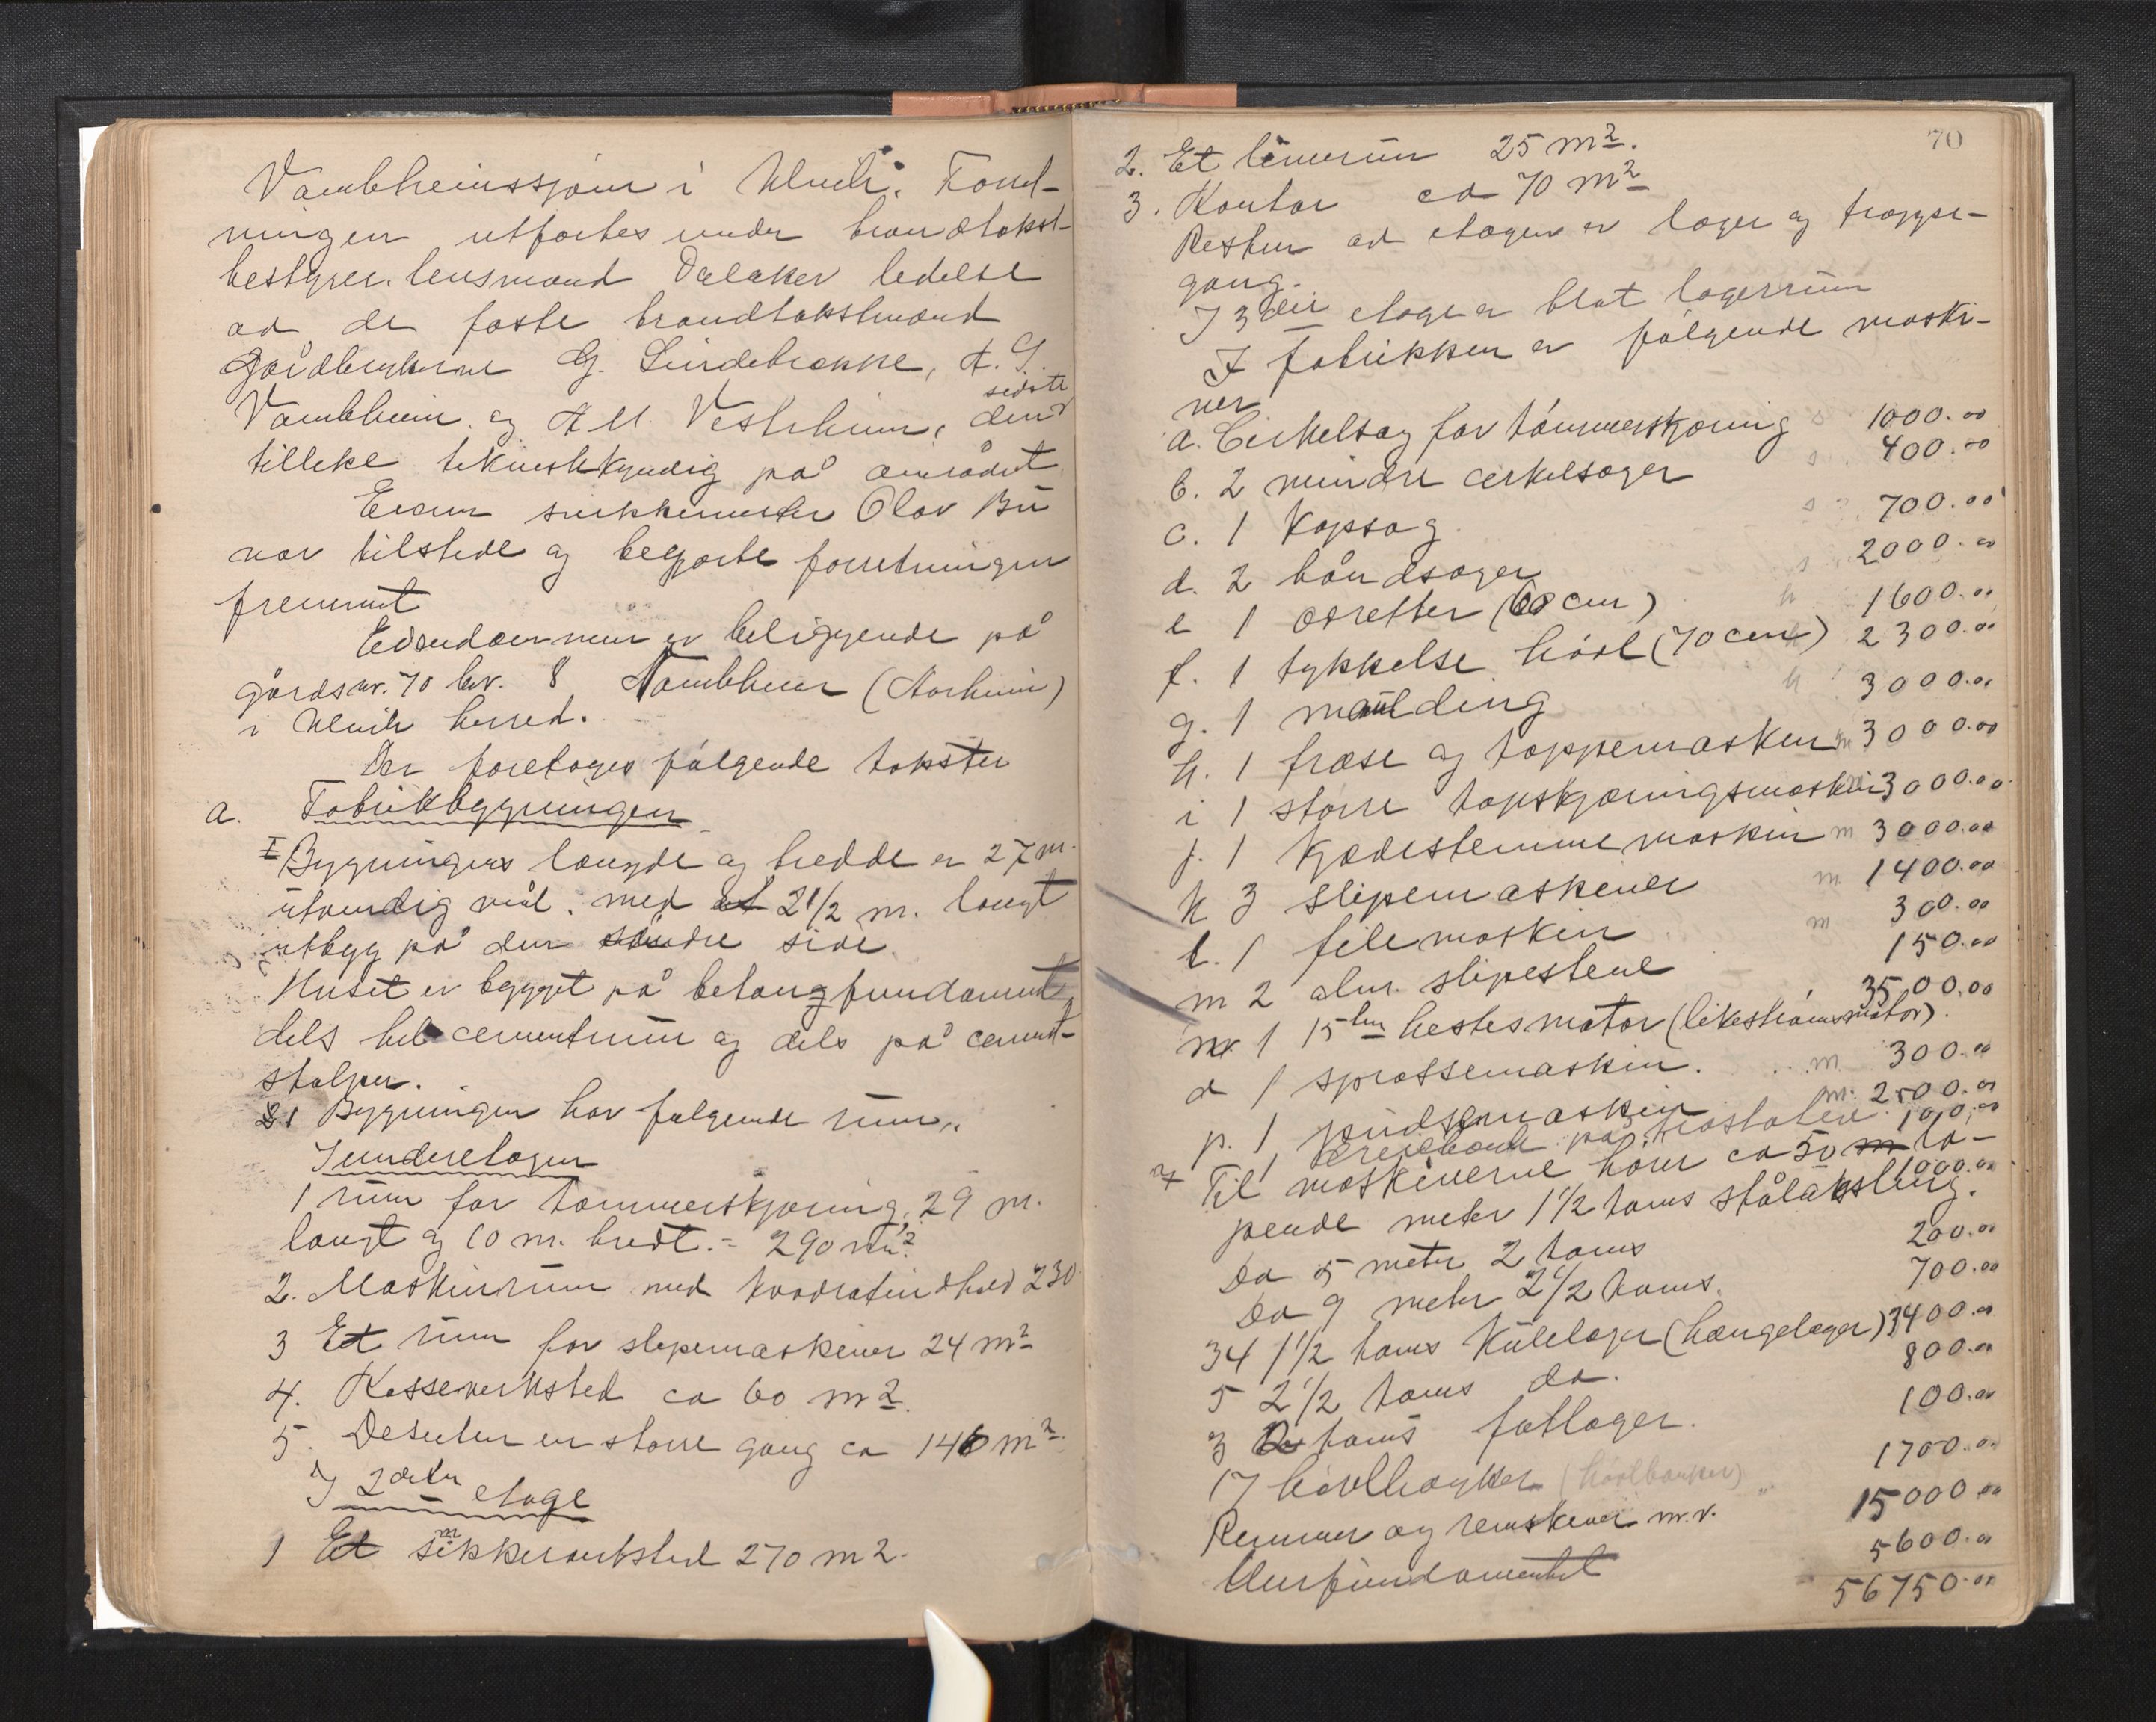 Vambheimssjøen i Ulvik. Forret-
ningen utførtes under brandtakst-
bestyrer, lensmand Dalaker ledelse
av de faste brandtakstmænd
Gårdbrukerne G. Lindebrække, A. G.
sidste
Vambheim og A. M. Vestrheim, den
tillike teknischkyndig på området
Eieren snekkermester Olav Bu
var tilstede og begjærte forretningen
fremmet
Eiendommen er beliggende på
gårdsnr. 70 brnr. 8 Vambheim (Aarheim)
i Ulvik herred.
Der foretages følgende takster
a. Fabrikbygningen
I Bygningens længde og bredde er 27 m.
utvendig mål. med et 2 1/2 m. langt
utbygg på den søndre side.
Huset er bygget på betongfundament
dels hel cementmur og dels på cement-
stolper.
2. Bygningen har følgende rum,
I underetagen
1 rum for tømmerskjæring, 29 m.
langt og 10 m. bredt. = 290 m2.
2. Maskinrum med kvadratindhold 230
3 Et rum for slipemaskiner 24 m2
4. Kasseverksted ca 60 m2.
5. Desuten en større gang ca 146 m2.
I 2den etage
1 Et snikkerverksted 270 m2.
70
2. Et limerum 25 m2.
3. Kontor ca 70 m2
Resten av etagen er lager og trappe-
gang.
I 3die etage er blot lagerrum
I fabrikken er følgende maski-
ner
a. Cirkelsag for tømmerskjæring s 1000.00
b. 2 mindre cirkelsager s 400.00
c. 1 Kapsag s 700.00
d. 2 båndsager s 2000.00
e 1 avretter (60 cm) h 1600.00
f. 1 tykkelse høvl (70 cm) h 2300.00
g. 1 maulding h 3000.00
h. 1 fræse og tappemaskin m 3000.00
i 1 større tapskjæringsmaskin 3000.00
j. 1 Kjædestemmemaskin m 3000.00
k 3 slipemaskiner m 1400.00
l. 1 filemaskin m 300.00
m 2 alm. slipestene 150.00
3500.00
n 1 15 hestesmotor (likestrømsmotor).
o 1 sprossemaskin. m 300.00
p. 1 pudsemaskin m. 2500.00
1 dreiebænk på træstativ 100.00
Til maskinerne hører ca 50 lø-
1000.00
pende meter 1 1/2 toms stålaksling.
Do 5 meter 2 toms 200.00
Do 9 meter 2 1/2 toms. 700.00
34 1 1/2 toms Kulelager (hængelager) 3400.00
5 2 1/2 toms do. 800.00
3 2 toms fotlager. 100.00
17 høvlbænker (høvlbænker) 1700.00
Remmer og remskiver m.v. 15000.00
Murfundamentet 5600.00
56750.00